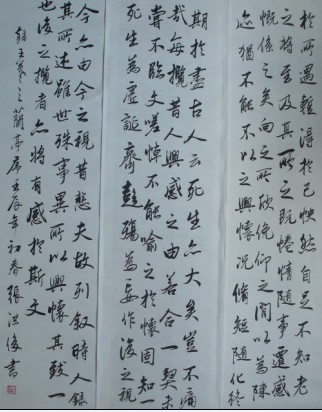 所遇暫得於己怏然自足不知老
之將至及其所之既惓情隨事遷感
慨係之矣向之所欣俛仰之間以為陳
迹猶不能不以之興懷況脩短隨化終
期於盡古人云死生亦大矣豈不痛
哉每攬昔人興感之由若合一契未
嘗不臨文嗟悼不能喻之於懷固知一
死生為虛誕齊彭殤為妄作後之視
今亦由今之視昔悲夫故列敘時人錄
其所述雖世殊事異所以興懷其致一
也後之攬者亦將有感於斯文
錄王羲之蘭亭序壬辰年初春張洪俊書